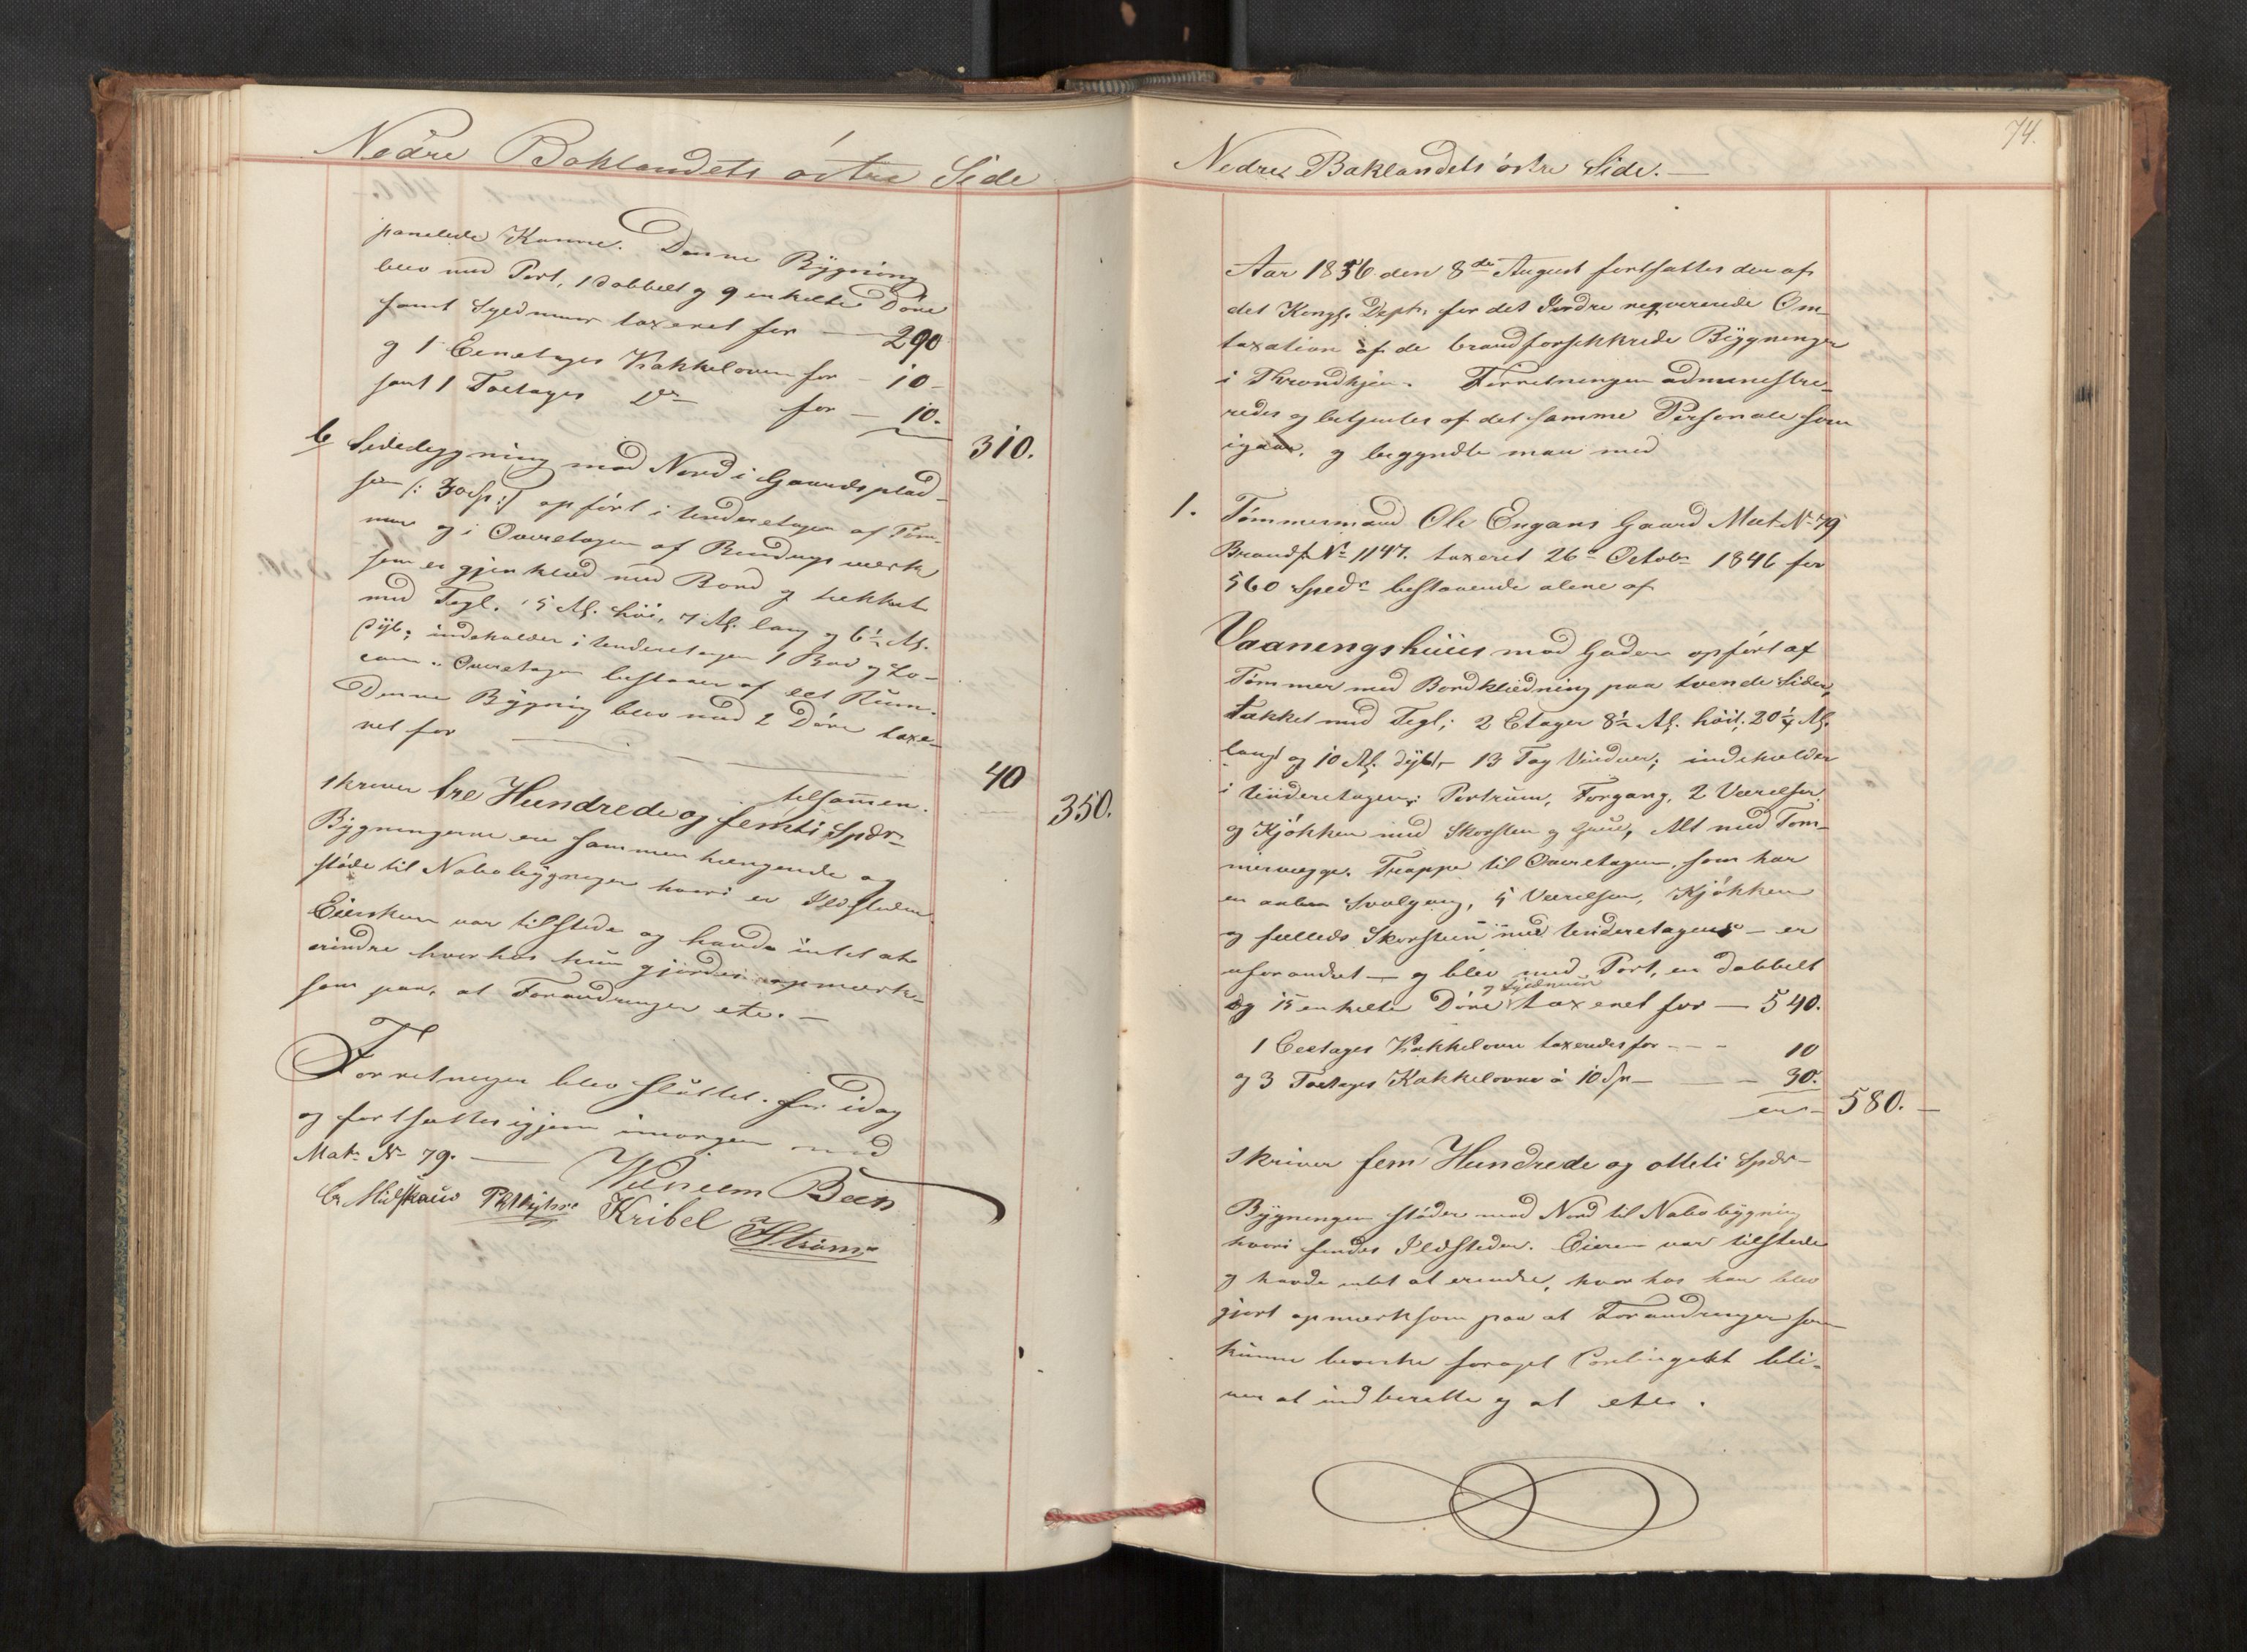 Nedre Baklandets östre Side
panelede Kamre. Denne Bÿgning
blev med Port, 1 dobbelt og 9 enkelte Döre
samt Syldmuur taxeret for — 290
og 1 Eenetages Kakkelovn for – 10 –
samt 1 Toetages Do for — 10.
310.
b/ Sidebygning mod Nord i Gaardsplad-
sen /: 30 Sp :/ opfört i Underetagen af Töm-
mer og i Overetagen af Bindingsværk
som er gjenklæd med Bord og tækket
med Tegl. 5 Al. höi, 7 Al. lang og 6½ Al.
dÿb; indeholder i Underetagen 1 Bod og Lo-
cum. Overetagen bestaaer af eet Rum.
Denne Bÿgning blev med 2 Döre taxe-
ret for — 40
tilsammen. 350.
skriver tre Hundrede og femti Spdr
Bÿgningerne ere sammenhængende og
stöde til Nabobÿgninger hvori er Ildsteder.
Eiersken var tilstede og havde intet at
erindre hvorhos hun gjordes opmærk-
som paa, at Forandringer etc. —
Forretningen blev sluttet for idag
og fortsættes igjen imorgen med
Mat. No 79. —
Wilhelm Been
Kribel
74.
Nedre Baklandets östre Side. —
Aar 1856 den 8de August fortsattes den af
det Kongl. Dept. for det Indre reqvirerede Om-
taxation af de brandforsikkrede Bÿgninger
i Throndhjem. Forretningen administre-
redes og betjentes af det samme Personale som
igaar, og begyndte man med
1. Tömmermand Ole Engans Gaard Mat No 79
Brandf. No 1147. taxeret 26de Octobr 1846 for
560 Spedr bestaaende alene af
Vaaningshuus mod Gaden opfört af
Tömmer med Bordklædning paa tvende Sider,
tækket med Tegl; 2 Etager 8½ Al. höit, 20¼ Al.
langt og 10 Al. dÿbt, – 13 Fag Vinduer; indeholder
i Underetagen: Portrum, Forgang, 2 Værelser
og Kjökken med Skorsten og Gruue, Alt med Töm-
mervægge. Trappe til Overetagen, som har
en aaben Svalgang, 5 Værelser, Kjökken
og fælleds Skorsteen med Underetagens – er
uforandret — og blev med Port, en dobbelt
og 15 enkelte Döre og Syldmuur taxeret for — 540.
1 Eetages Kakkelovn taxeredes for – – – 10
og 3 Toetages Kakkelovne á 10 Sp — – – 30.
er – 580. —
skriver fem Hundrede og otteti Spdr –
Bÿgningen stöder mod Nord til Nabobÿgning
hvori findes Ildsteder. Eieren var tilstede
og havde intet at erindre, hvorhos han blev
gjort opmærksom paa at Forandringer som
kunne bevirke foröget Contingent bli-
ver at indberette og at etc.